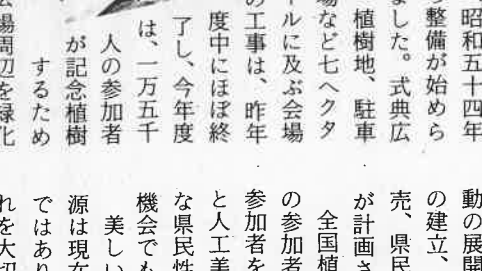 昭和五十四年
整備が始めら
ました。式典広
植樹地、駐車
場など七ヘクタ
ールに及ぶ会場
の工事は、昨年
度中にほぼ終
了し、今年度
は、一万五千
人の参加者
が記念植樹
するため
会場周辺を緑化
動の展開
の建立、
売、県民
が計画さ
全国植
の参加者
参加者を
と人工美
な県民性
機会でも
美しい
源は現在
ではあり
れを大切